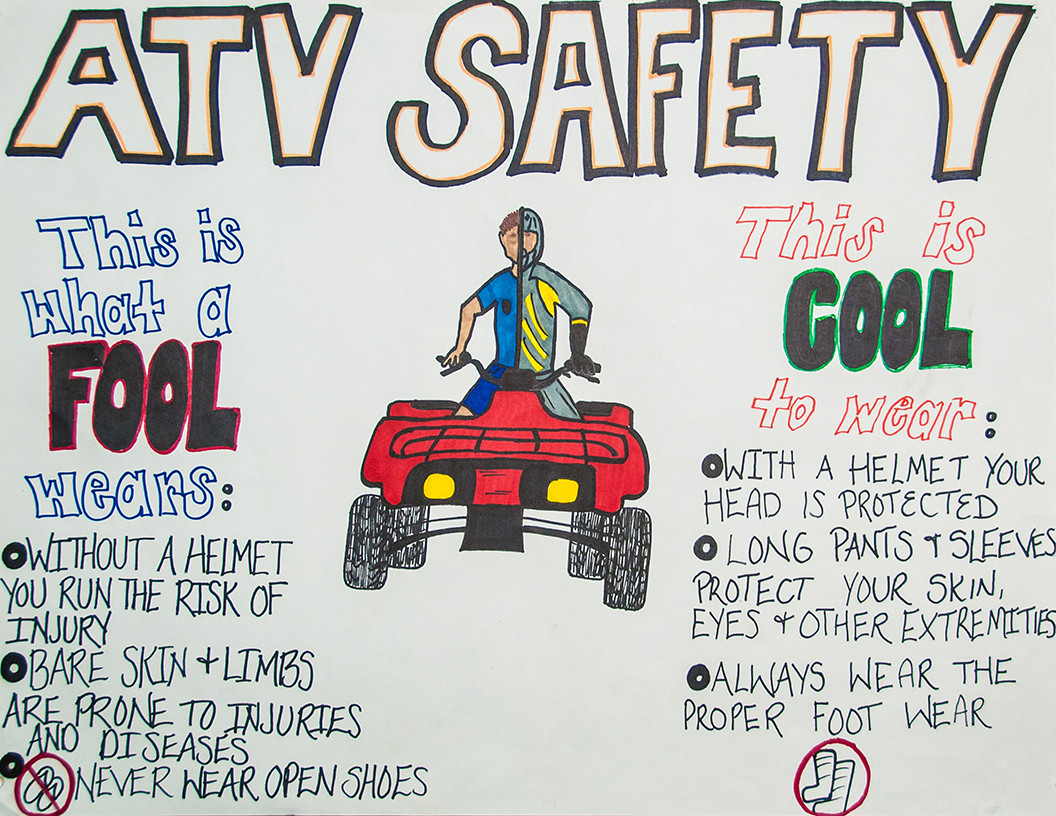 ATV SAFETY
This is
what a
FOOL
wears:
WITHOUT A HELMET
YOU RUN THE RISK OF
INJURY
BARE SKIN + LIMBS
ARE PRONE TO INJURIES
AND DISEASES
NEVER WEAR OPEN SHOES
This is
COOL
to wear:
WITH A HELMET YOUR
HEAD IS PROTECTED
LONG PANTS + SLEEVES
PROTECT YOUR SKIN,
EYES + OTHER EXTREMITIES
ALWAYS WEAR THE
PROPER FOOT WEAR